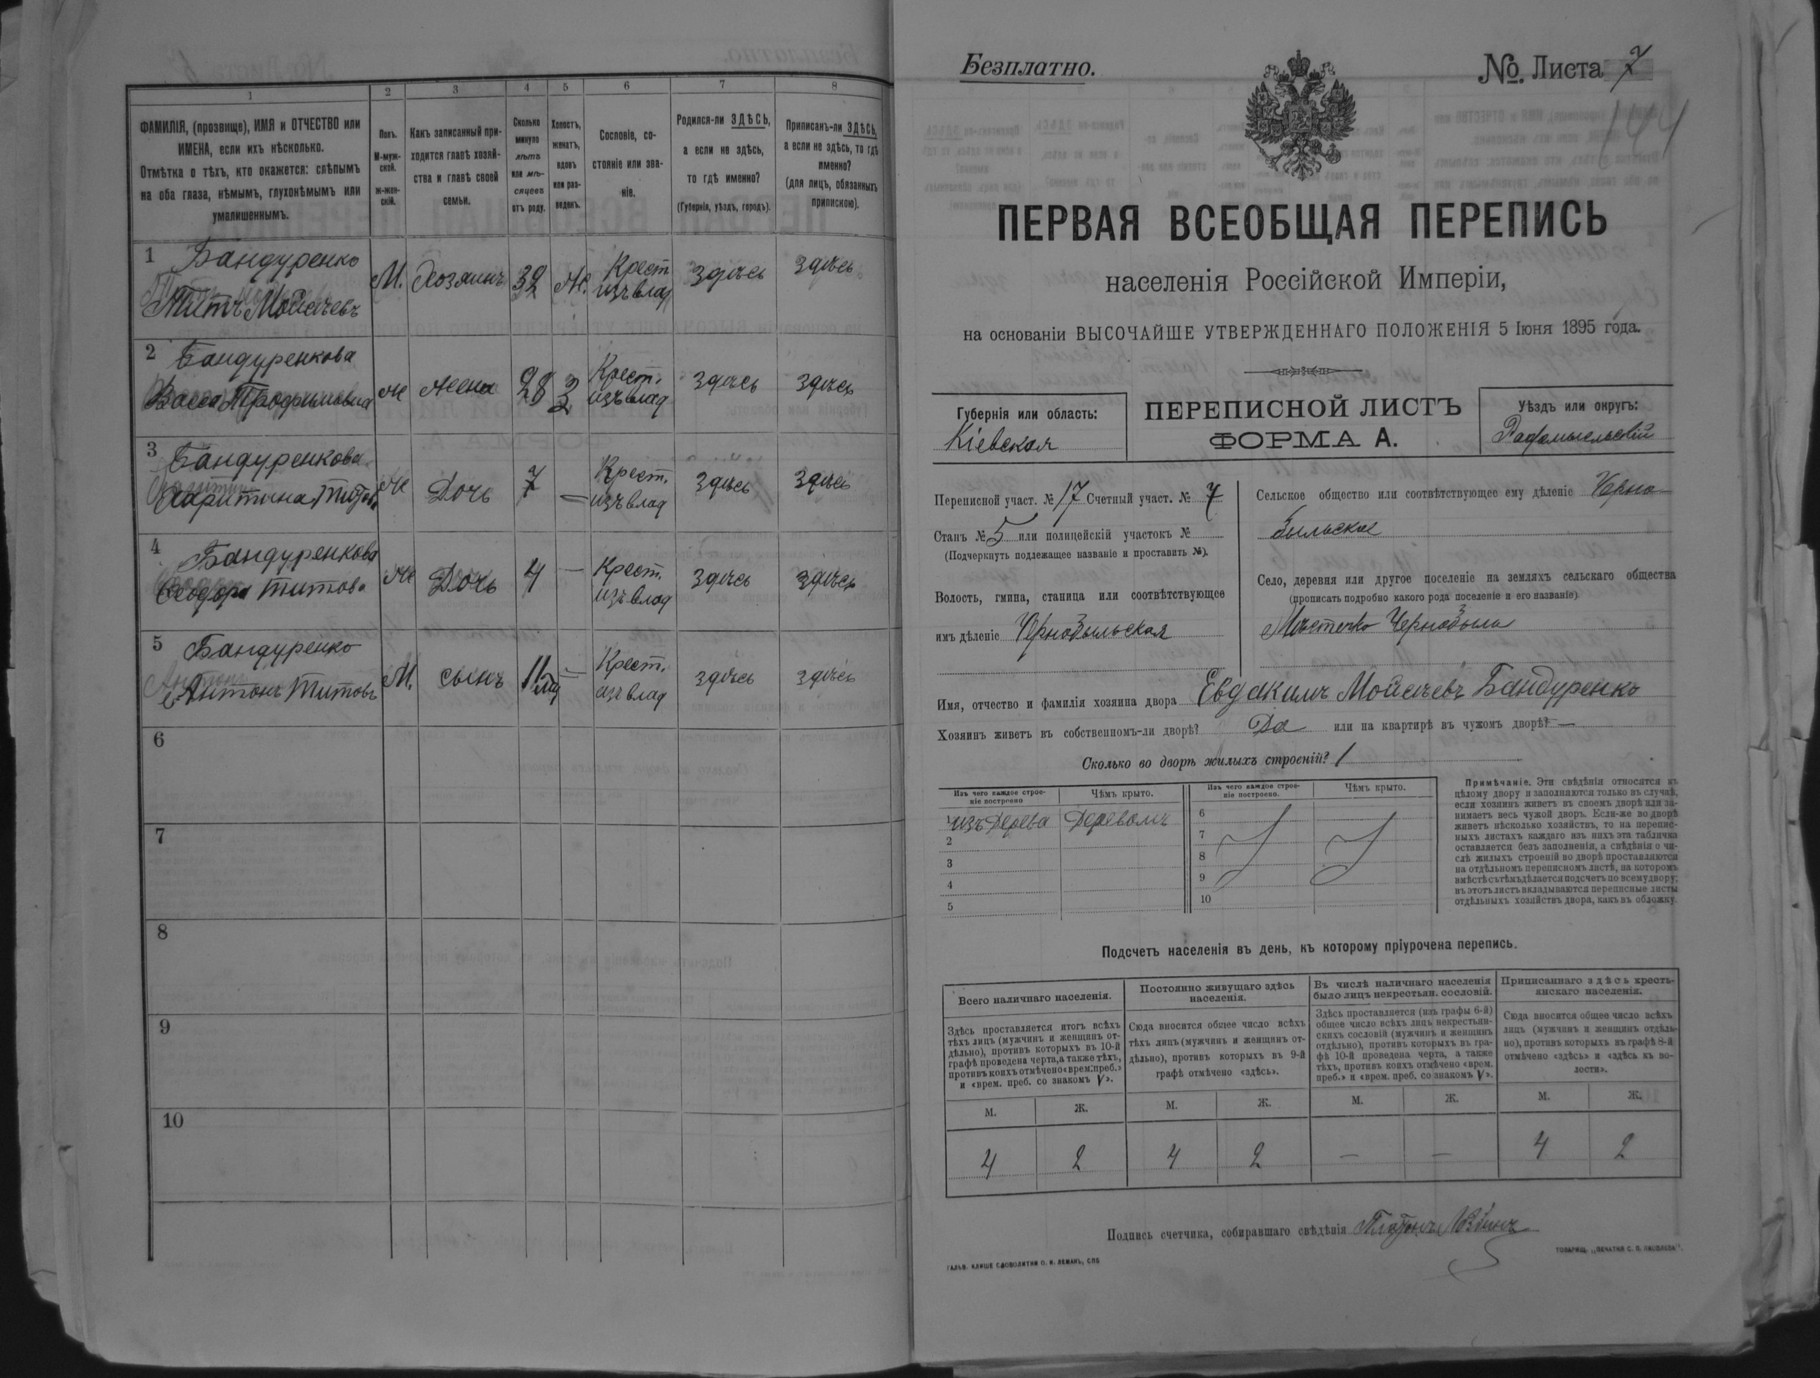 1 2 3 4 5 6 7 8
ФАМИЛІЯ, (прозвище), ИМЯ и ОТЧЕСТВО или
ИМЕНА, если ихъ нѣсколько.
Отмѣтка о тѣхъ, кто окажется: слѣпымъ
на оба глаза, нѣмымъ, глухонѣмымъ или
умалишеннымъ.
Полъ.
М-муж-
ской.
ж-жен-
скій.
Какъ записанный при-
ходится главѣ хозяй-
ства и главѣ своей
семьи.
Сколько
минуло
лѣтъ
или мѣ-
сяцевъ
отъ роду.
Холостъ,
женатъ,
вдовъ
или раз-
веденъ.
Сословіе, со-
стояніе или зва-
ніе.
Родился-ли ЗДѢСЬ,
а если не здѣсь,
то гдѣ именно?
(Губернія, уѣздъ, городъ).
Приписанъ-ли ЗДѢСЬ,
а если не здѣсь, то гдѣ
именно?
(для лицъ, обязанныхъ
припискою).
1 Бандуренко
Титъ Мойсѣевъ
М. Хозяинъ 32 Ж. Крест. изъ влад здѣсь здѣсь
2 Бандуренкова
Васса Трофимовна
Ж Жена 28 З Крест. изъ влад здѣсь здѣсь
3 Бандуренкова
Харитина Титова
Ж Дочь 7 — Крест. изъ влад здѣсь здѣсь
4 Бандуренкова
Ѳеодора Титова
Ж Дочь 4 — Крест. изъ влад здѣсь здѣсь
5 Бандуренко
Антонъ Титовъ
М. сынъ 11 — Крест. изъ влад здѣсь здѣсь
6
7
8
9
10
Безплатно.
№. Листа 7
144
ПЕРВАЯ ВСЕОБЩАЯ ПЕРЕПИСЬ
населенія Россійской Имперіи,
на основаніи ВЫСОЧАЙШЕ УТВЕРЖДЕННАГО ПОЛОЖЕНІЯ 5 Іюня 1895 года.
Губернія или область:
Кіевская
ПЕРЕПИСНОЙ ЛИСТЪ
ФОРМА А.
Уѣздъ или округъ:
Радомысльскій
Переписной участ. № 17 Счетный участ. № 7
Станъ № 5 или полицейскій участокъ №
(Подчеркнуть подлежащее названіе и проставить №).
Волость, гмина, станица или соотвѣтствующее
имъ дѣленіе Чернобыльская
Сельское общество или соотвѣтствующее ему дѣленіе Черно-
быльское
Село, деревня или другое поселеніе на земляхъ сельскаго общества
(прописать подробно какого рода поселеніе и его названіе)
Мѣстечко Чернобыль
Имя, отчество и фамилія хозяина двора Евдакимъ Мойсѣевъ Бандуренко
Хозяинъ живетъ въ собственномъ-ли дворѣ? Да или на квартирѣ въ чужомъ дворѣ? —
Сколько во дворѣ жилыхъ строеній? 1
Изъ чего каждое строе-
ніе построено
Чѣмъ крыто.
Изъ чего каждое строе-
ніе построено.
Чѣмъ крыто.
1 изъ Дерева Деревомъ
2
3
4
5
6
7
8
9
10
Примѣчаніе. Эти свѣдѣнія относятся къ
цѣлому двору и заполняются только въ случаѣ,
если хозяинъ живетъ въ своемъ дворѣ или за-
нимаетъ весь чужой дворъ. Если-же во дворѣ
живетъ нѣсколько хозяйствъ, то на перепис-
ныхъ листахъ каждаго изъ нихъ эта табличка
оставляется безъ заполненія, а свѣдѣнія о чи-
слѣ жилыхъ строеній во дворѣ проставляются
на отдѣльномъ переписномъ листѣ, на которомъ
вмѣстѣ съ тѣмъ дѣлается подсчетъ по всему двору;
въ этотъ листъ вкладываются переписные листы
отдѣльныхъ хозяйствъ двора, какъ въ обложку.
Подсчетъ населенія въ день, къ которому пріурочена перепись.
Всего наличнаго населенія.
Здѣсь проставляется итогъ всѣхъ
тѣхъ лицъ (мужчинъ и женщинъ от-
дѣльно), противъ которыхъ въ 10-й
графѣ проведена черта, а также тѣхъ,
противъ коихъ отмѣчено «врем. преб.»
и «врем. преб. со знакомъ V».
Постоянно живущаго здѣсь
населенія.
Сюда вносится общее число всѣхъ
тѣхъ лицъ (мужчинъ и женщинъ от-
дѣльно), противъ которыхъ въ 9-й
графѣ отмѣчено «здѣсь».
Въ числѣ наличнаго населенія
было лицъ некрестьян. сословій.
Здѣсь проставляется (изъ графы 6-й)
общее число всѣхъ лицъ некрестьян-
скихъ сословій (мужчинъ и женщинъ
отдѣльно), противъ которыхъ въ гра-
фѣ 10-й проведена черта, а также
тѣхъ, противъ коихъ отмѣчено «врем.
преб.» и «врем. преб. со знакомъ V».
Приписаннаго здѣсь кресть-
янскаго населенія.
Сюда вносится общее число всѣхъ
лицъ (мужчинъ и женщинъ отдѣль-
но), противъ которыхъ въ графѣ 8-й
отмѣчено «здѣсь» и «здѣсь въ во-
лости».
М. Ж. М. Ж. М. Ж. М. Ж.
4 2 4 2 — — 4 2
Подпись счетчика, собиравшаго свѣдѣнія Платонъ
ГАЛЬВ. КЛИШЕ СЛОВОЛИТНИ О. И. ЛЕМАНЪ, СПБ
ТОВАРИЩ. „ПЕЧАТНЯ С. П. ЯКОВЛЕВА".